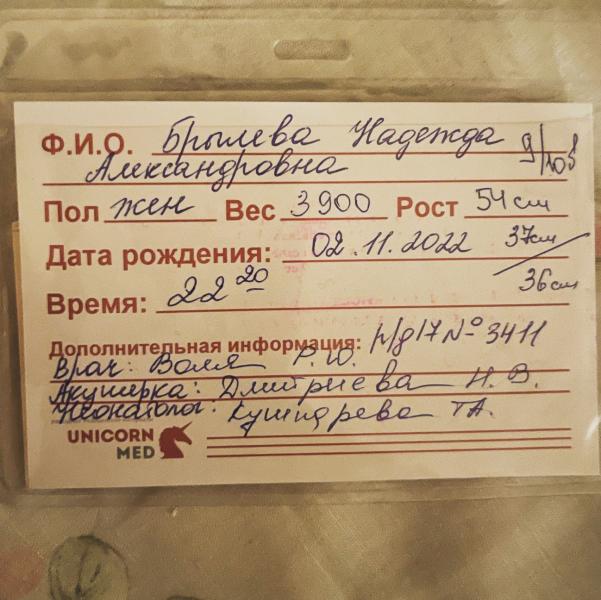 Ф.И.О. Брылева Надежда
Александровна 9/10б
Пол жен Вес 3900 Рост 54 см
Дата рождения: 02.11.2022 37см
Время: 22 20 36см
Дополнительная информация: р/д 17 № 3411
Врач: Воля Р. Ю.
Акушерка: Дмитриева Н. В.
Неонатолог: Кушнарева Т.А.
UNICORN
MED